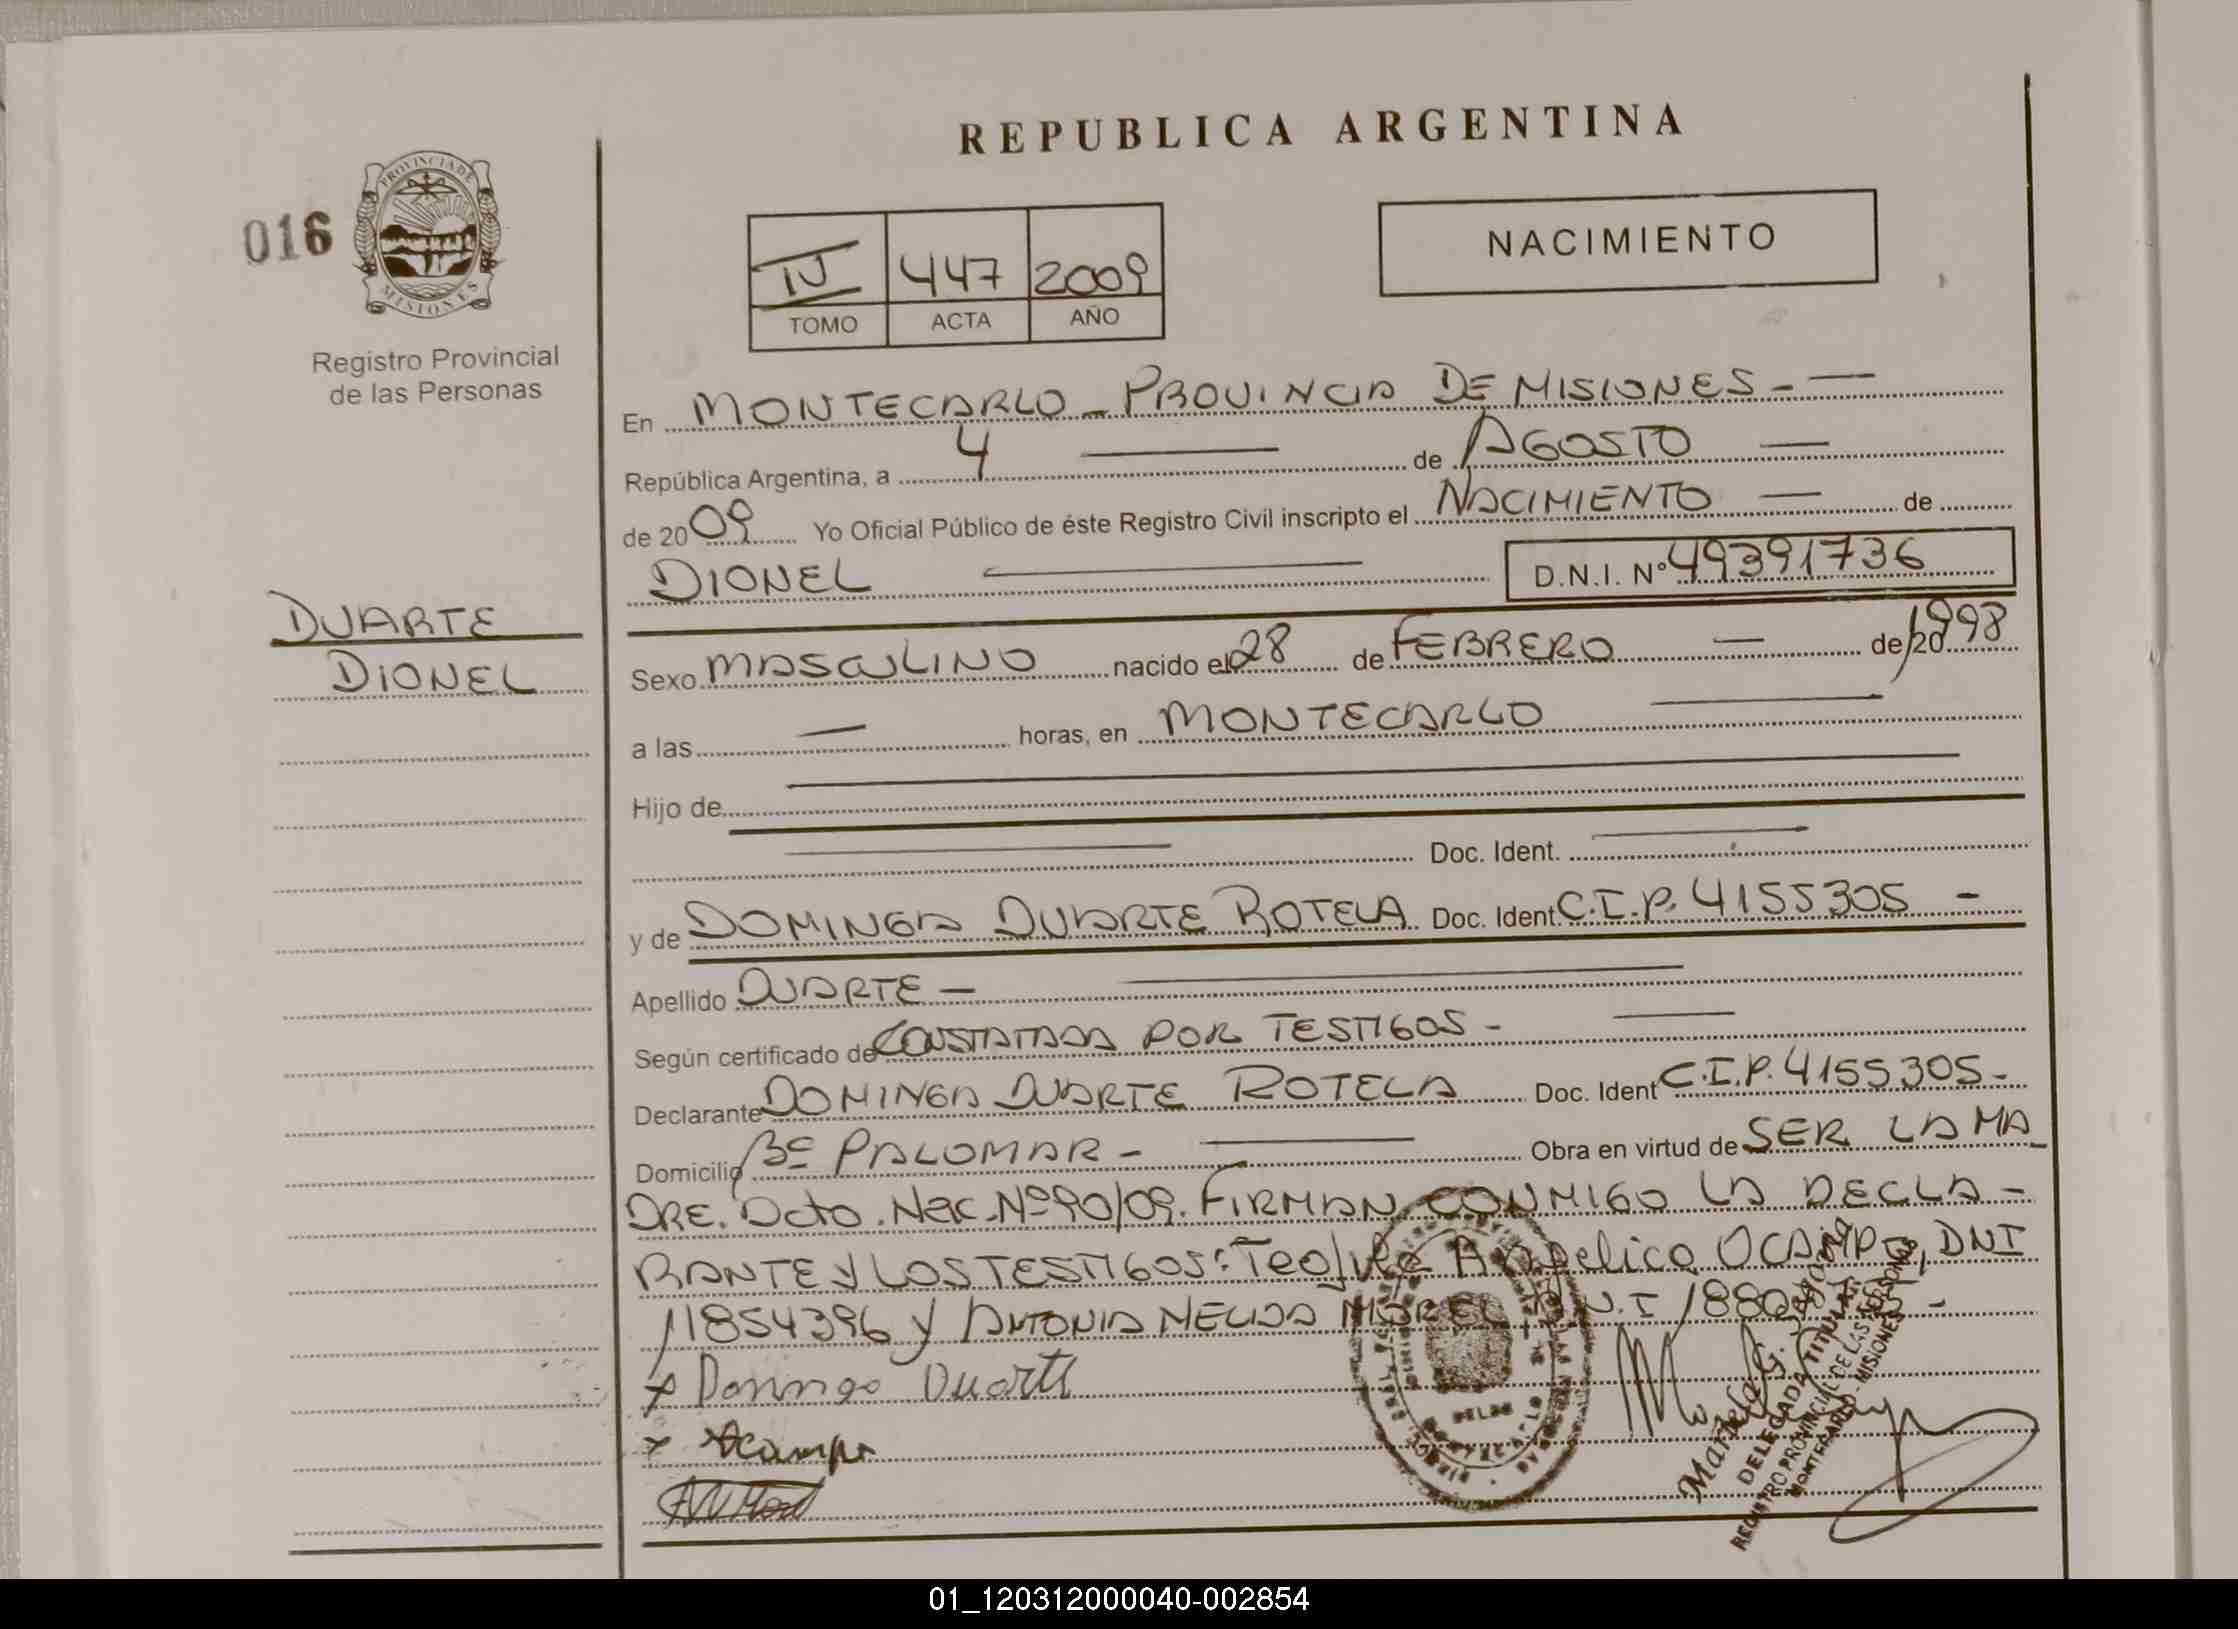 REPUBLICA ARGENTINA
016
PROVINCIA DE
MISIONES
Registro Provincial
de las Personas
IV 447 2009
TOMO ACTA AÑO
NACIMIENTO
En MONTECARLO - PROVINCIA DE MISIONES - —
República Argentina, a 4 — de AGOSTO —
de 2009 Yo Oficial Público de éste Registro Civil inscripto el NACIMIENTO — de
DIONEL — D.N.I. Nº 49391736
DUARTE
DIONEL
Sexo MASCULINO nacido el 28 de FEBRERO — de/20 1998
a las — horas, en MONTECARLO —
Hijo de —
— Doc. Ident. —
y de DOMINGA DUARTE ROTELA Doc. Ident. C.I.P. 4155305 -
Apellido DUARTE - —
Según certificado de CONSTATADA POR TESTIGOS - —
Declarante DOMINGA DUARTE ROTELA Doc. Ident C.I.P. 4155305-
Domicilio Bº PALOMAR - — Obra en virtud de SER LA MA
DRE. Dcto. Nac. Nº 90/09. FIRMAN CONMIGO LA DECLA-
RANTE Y LOS TESTIGOS: Angelica OCAMPO, DNI
11854396 Y ANTONIA NELIDA MOREL D.N.I
x Domingo Duarte
x Ocampo
DELEGADA TITULAR
REGISTRO PROVINCIAL DE LAS PERSONAS
MONTECARLO - MISIONES
01_120312000040-002854